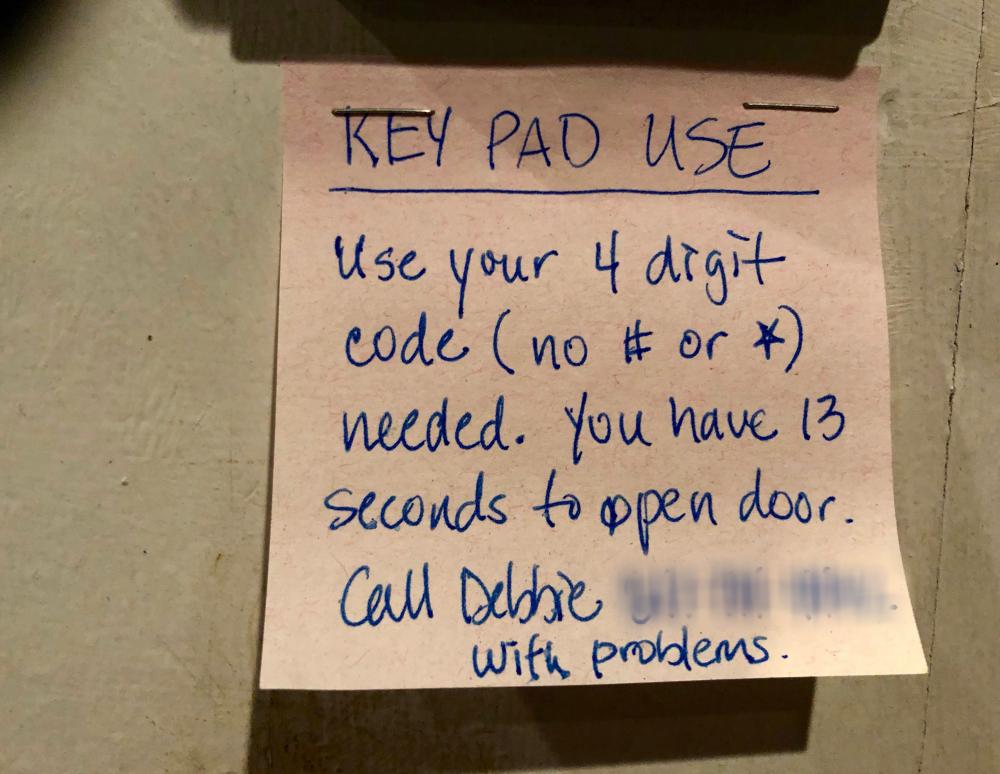 KEY PAD USE
Use your 4 digit
code (no # or *)
needed. You have 13
seconds to open door.
Call Debbie
with problems.